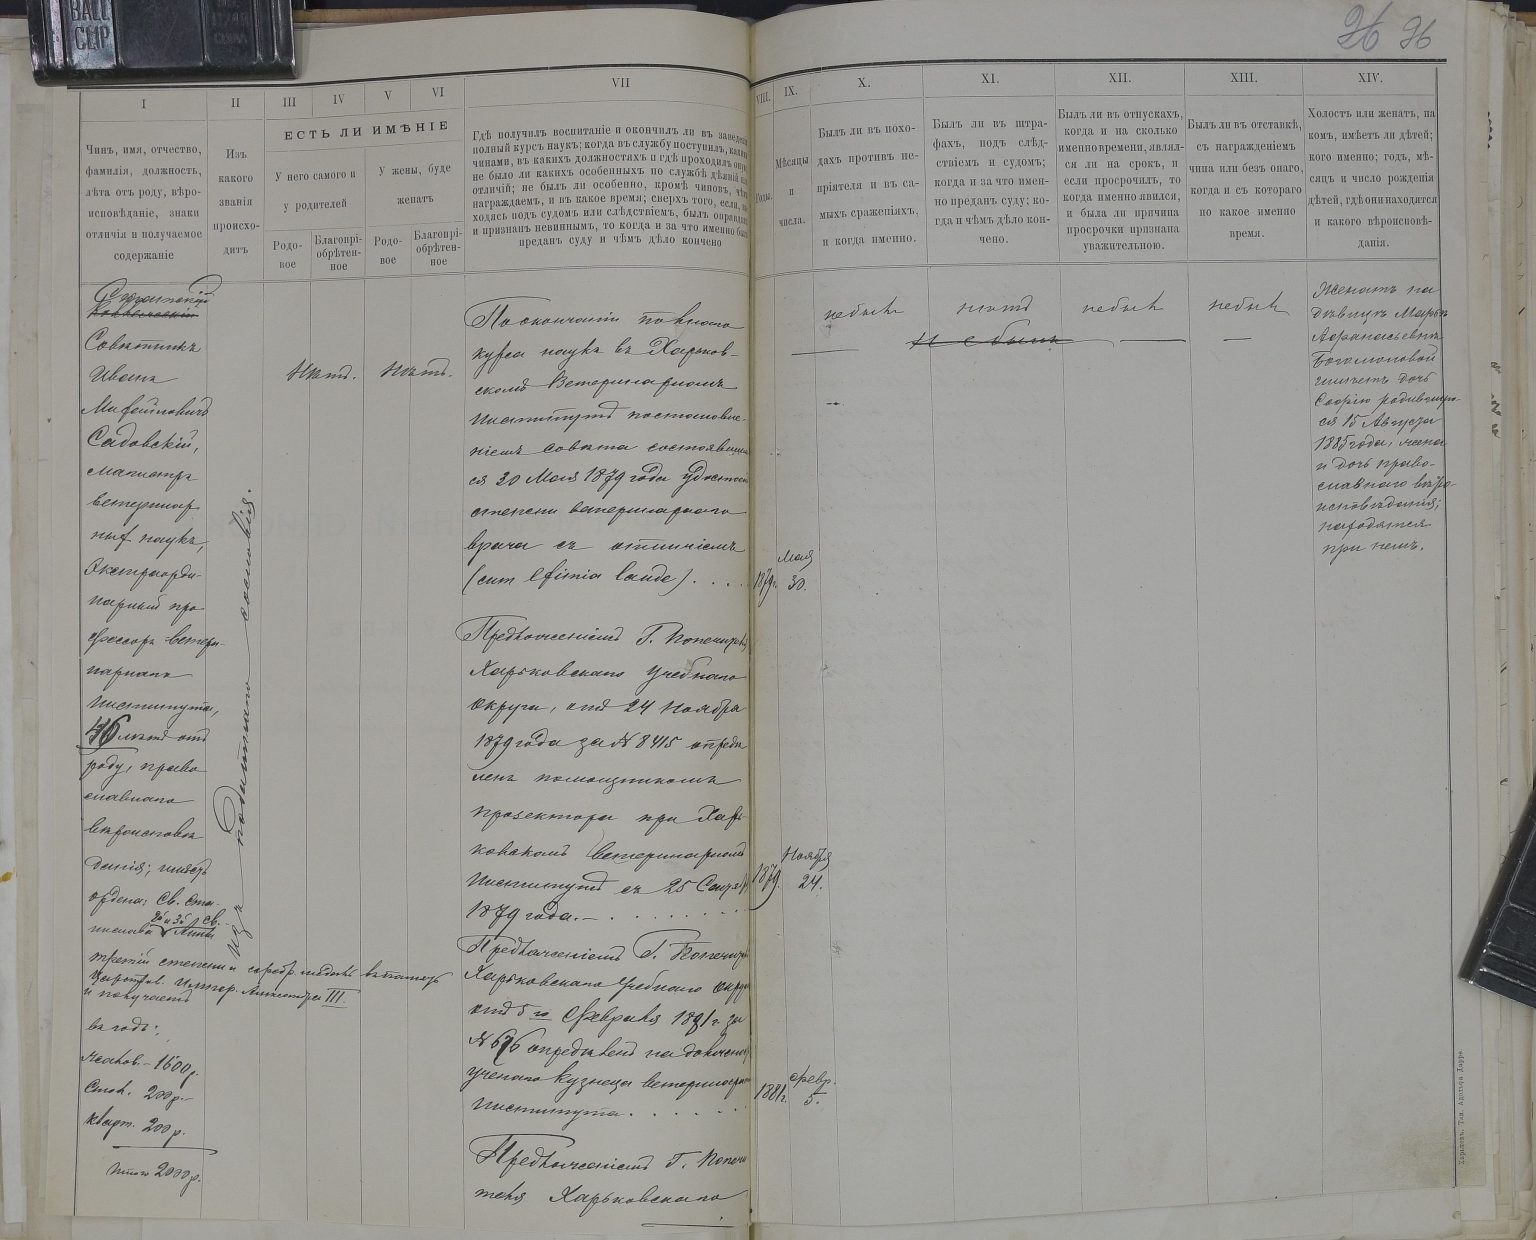 BALL
CLIP
26 96
I
II
III
IV
V
VI
VII
VIII.
IX.
X.
XI.
XII.
XIII.
XIV.
Чинъ, имя, отчество,
фамилія, должность,
лѣта отъ роду, вѣро-
исповѣданіе, знаки
отличія и получаемое
содержаніе
Изъ
какого
званія
происхо-
дитъ
ЕСТЬ ЛИ ИМѢНІЕ
У него самого и
у родителей
У жены, буде
женатъ
Родо-
вое
Благопрі-
обрѣтен-
ное
Родо-
вое
Благопрі-
обрѣтен-
ное
Гдѣ получилъ воспитаніе и окончилъ ли въ заведеніи
полный курсъ наукъ; когда въ службу поступилъ, какими
чинами, въ какихъ должностяхъ и гдѣ проходилъ оную;
не было ли какихъ особенныхъ по службѣ дѣяній или
отличій; не былъ ли особенно, кромѣ чиновъ, чѣмъ
награждаемъ, и въ какое время; сверхъ того, если, на-
ходясь подъ судомъ или слѣдствіемъ, былъ оправданъ
и признанъ невиннымъ, то когда и за что именно былъ
преданъ суду и чѣмъ дѣло кончено
Годы.
Мѣсяцы
и
числа.
Былъ ли въ похо-
дахъ противъ не-
пріятеля и въ са-
мыхъ сраженіяхъ,
и когда именно.
Былъ ли въ штра-
фахъ, подъ слѣд-
ствіемъ и судомъ;
когда и за что имен-
но преданъ суду; ко-
гда и чѣмъ дѣло кон-
чено.
Былъ ли въ отпускахъ,
когда и на сколько
именно времени, являл-
ся ли на срокъ, и
если просрочилъ, то
когда именно явился,
и была ли причина
просрочки признана
уважительною.
Былъ ли въ отставкѣ,
съ награжденіемъ
чина или безъ онаго,
когда и съ котораго
по какое именно
время.
Холостъ или женатъ, на
комъ, имѣетъ ли дѣтей;
кого именно; годъ, мѣ-
сяцъ и число рожденія
дѣтей, гдѣ они находятся
и какого вѣроисповѣ-
данія.
Совѣтникъ
Иванъ
Садовскій,
магистръ
ветеринар
ныхъ наукъ,
Экстраорди-
нарный про
фессоръ ветери-
нарнаго
института,
46 лѣтъ отъ
роду, право
славнаго
вѣроисповѣ
данія; имѣетъ
ордена: Св. Ста-
нислава 2й и 3й, Св. Анны
третьей степени и серебр. медаль въ память
Царств. Импер. Александра III
и получаетъ
въ годъ:
жалов. – 1600 р.
Стол. 200 р. –
кварт. 200 р.
Итого 2000 р.
Изъ податнаго сословія.
Нѣтъ.
Нѣтъ.
По окончаніи полнаго
курса наукъ въ Харьков-
скомъ Ветеринарномъ
Институтѣ постановле-
ніемъ совѣта состоявшим
ся 30 Мая 1879 года удостоенъ
степени ветеринарнаго
врача съ отличіемъ
(cum eximia laude). . . .
1879 г.
Мая
30.
Предложеніемъ Г. Попечителя
Харьковскаго Учебнаго
Округа, отъ 24 Ноября
1879 года за № 8415 опредѣ
ленъ помощникомъ
прозектора при Харь
ковскомъ Ветеринарномъ
Институтѣ съ 25 Сентяб
1879 года. – . . . . . . .
1879.
Ноября
24.
Предложеніемъ Г. Попечит
Харьковскаго Учебнаго Округа
отъ 5го Февраля 1881 г. за
№ 676 опредѣленъ на должность
ученаго кузнеца ветеринарнаго
Института. . . . . . .
1881 г.
Февр.
5.
Предложеніемъ Г. Попечи
теля Харьковскаго
не былъ
нѣтъ
не былъ
не былъ
Не былъ
Женатъ на
дѣвицѣ Марьѣ
Афанасьевнѣ
Богомоловой
имѣетъ дочь
Софію родившую-
ся 15 Августа
1885 года; жена
и дочь право-
славнаго вѣро-
исповѣданія;
находятся
при немъ.
Харьковъ. Тип. Адольфа Дарре.